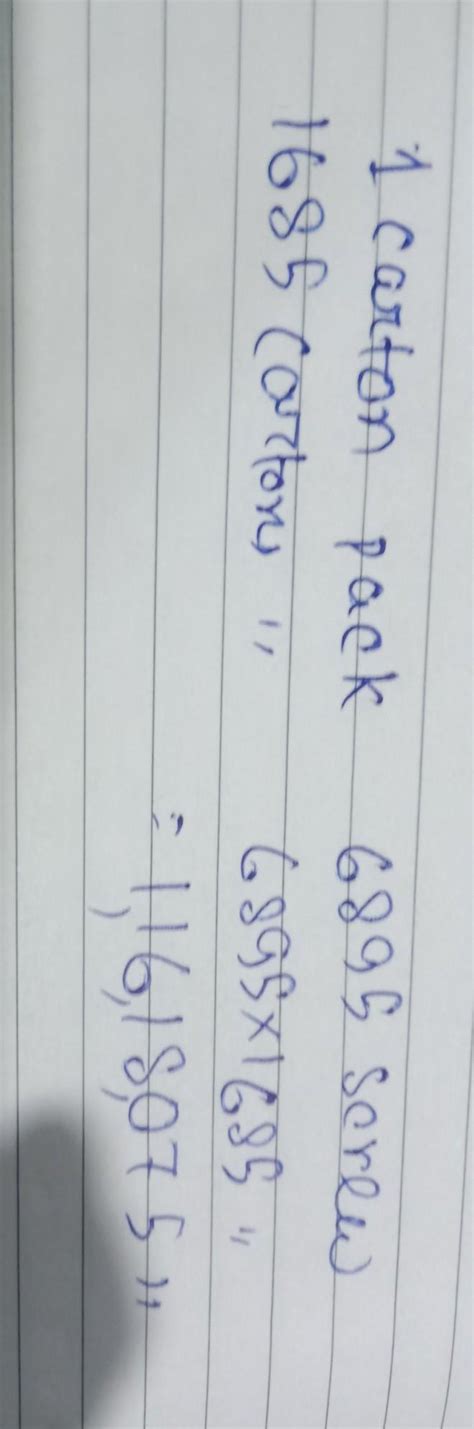 1 carton pack 6895 screw
1685 Cartons " 6895×1685 "
= 1,16,18,075 "